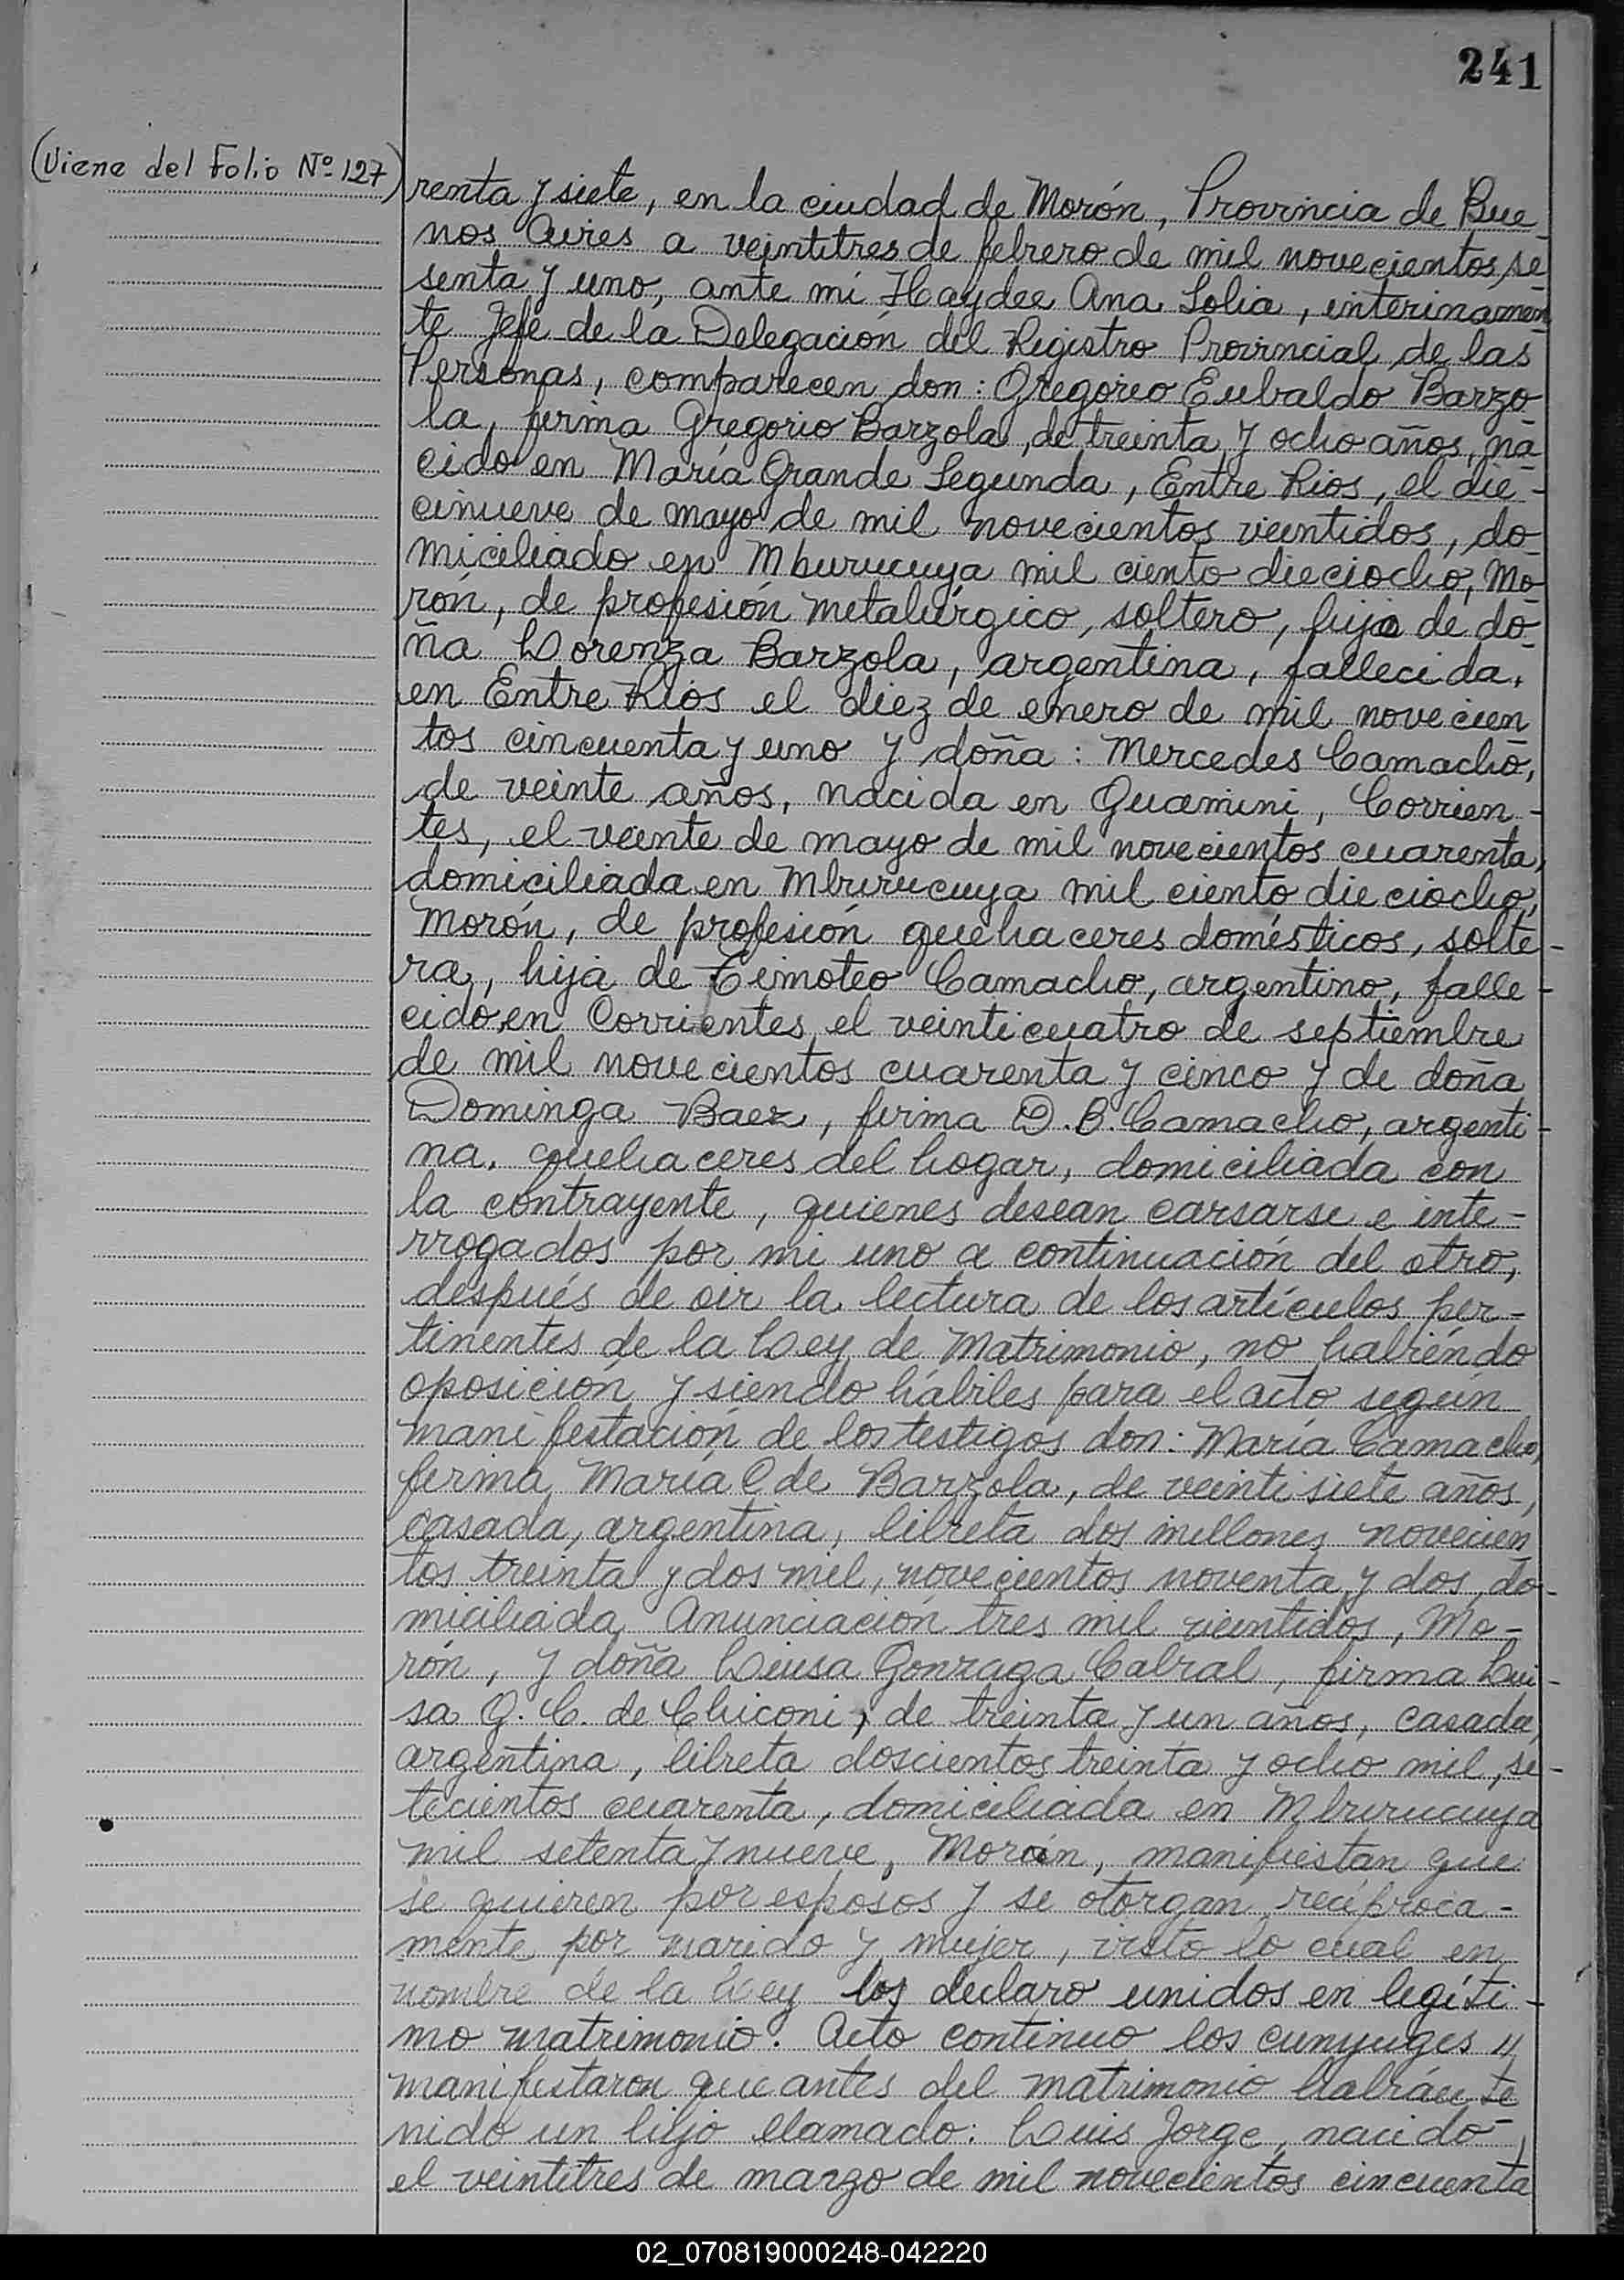 241
(Viene del Folio Nº 127)
renta y siete, en la ciudad de Morón, Provincia de Bue-
nos Aires a veintitres de febrero de mil novecientos se-
senta y uno, ante mi Haydee Ana Solia, interinamen-
te Jefe de la Delegación del Registro Provincial de las
Personas, comparecen don: Gregorio Eubaldo Barzo-
la, firma Gregorio Barzola, de treinta y ocho años, na-
cido en María Grande Segunda, Entre Rios, el die-
cinueve de mayo de mil novecientos veintidos, do-
miciliado en Mburucuya mil ciento dieciocho, Mo-
rón, de profesión metalúrgico, soltero, hijo de do-
ña Lorenza Barzola, argentina, fallecida.
en Entre Rios el diez de enero de mil novecien-
tos cincuenta y uno y doña: Mercedes Camacho,
de veinte años, nacida en Guamini, Corrien-
tes, el veinte de mayo de mil novecientos cuarenta,
domiciliada en Mburucuya mil ciento dieciocho,
Morón, de profesión quehaceres domésticos, solte-
ra, hija de Timoteo Camacho, argentino, falle-
cido en Corrientes el veinticuatro de septiembre
de mil novecientos cuarenta y cinco y de doña
Dominga Baez, firma D. B. Camacho, argenti-
na, quehaceres del hogar, domiciliada con
la contrayente, quienes desean carsarse e inte-
rrogados por mi uno a continuación del otro,
después de oir la lectura de los artículos per-
tinentes de la Ley de Matrimonio, no habiéndo
oposición y siendo hábiles para el acto según
manifestación de los testigos don: María Camacho,
firma María C de Barzola, de veintisiete años,
casada, argentina, libreta dos millones novecien
tos treinta y dos mil, novecientos noventa y dos, do-
miciliada Anunciación tres mil veintidos, Mo-
rón, y doña Luisa Gonzaga Cabral, firma Lui-
sa G. C. de Chiconi, de treinta y un años, casada,
argentina, libreta doscientos treinta y ocho mil, se-
tecientos cuarenta, domiciliada en Mburucuya
mil setenta y nueve, Morón, manifiestan que
se quieren por esposos y se otorgan recíproca-
mente por marido y mujer, visto lo cual en
nombre de la Ley los declaro unidos en legíti-
mo matrimonio. Acto continuo los cunyuges "
manifestaron que antes del matrimonio habían te-
nido un hijo llamado: Luis Jorge, nacido
el veintitres de marzo de mil novecientos cincuenta
02_070819000248-042220